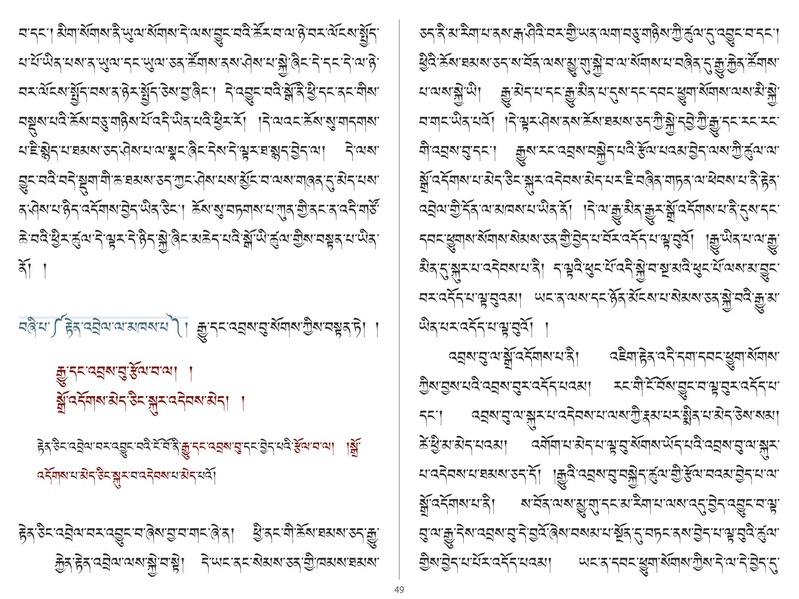 བ་དང་། མིག་སོགས་ནི་ཡུལ་སོགས་དེ་ལས་བྱུང་བའི་ཚོར་བ་ལ་ཉེ་བར་ལོངས་སྤྱོད་
པ་པོ་ཡིན་པས་ན་ཡུལ་དང་ཡུལ་ཅན་ཚོགས་ནས་ཤེས་པ་སྐྱེ་ཞིང་དེ་དང་དེ་ལ་ཉེ་
བར་ལོངས་སྤྱོད་བས་ན་ཉེར་སྤྱོད་ཅེས་བྱ་ཞིང་། དེ་འབྱུང་བའི་སྒོ་ནི་ཕྱི་དང་ནང་གིས་
བསྡུས་པའི་ཆོས་བཅུ་གཉིས་པོ་འདི་ཡིན་པའི་ཕྱིར་རོ། །དེ་ལའང་ཆོས་སུ་གདགས་
པ་ཇི་སྙེད་པ་ཐམས་ཅད་ཤེས་པ་ལ་སྣང་ཞིང་དེས་དེ་ལྟར་ཐ་སྙད་བྱེད་ལ། དེ་ལས་
བྱུང་བའི་བདེ་སྡུག་གི་ཆ་ཐམས་ཅད་ཀྱང་ཤེས་པས་མྱོང་བ་ལས་གཞན་དུ་མེད་པས་
ན་ཤེས་པ་ཉིད་འདོགས་བྱེད་ཡིན་ཅིང་། ཆོས་སུ་བཏགས་པ་ཀུན་གྱི་ནང་ན་འདི་གཙོ་
ཆེ་བའི་ཕྱིར་ཚུལ་དེ་ལྟར་དེ་ཉིད་སྐྱེ་ཞིང་མཆེད་པའི་སྒོ་ཡི་ཚུལ་གྱིས་བསྟན་པ་ཡིན་
ནོ། །
བཞི་པ་༼རྟེན་འབྲེལ་ལ་མཁས་པ༽། རྒྱུ་དང་འབྲས་བུ་སོགས་ཀྱིས་བསྟན་ཏེ། །
རྒྱུ་དང་འབྲས་བུ་རྩོལ་བ་ལ། །
སྒྲོ་འདོགས་མེད་ཅིང་སྐུར་འདེབས་མེད། །
རྟེན་ཅིང་འབྲེལ་བར་འབྱུང་བའི་ངོ་བོ་ནི་རྒྱུ་དང་འབྲས་བུ་དང་བྱེད་པའི་རྩོལ་བ་ལ། །སྒྲོ་
འདོགས་པ་མེད་ཅིང་སྐུར་བ་འདེབས་པ་མེད་པའོ།
རྟེན་ཅིང་འབྲེལ་བར་འབྱུང་བ་ཞེས་བྱ་བ་གང་ཞེ་ན། ཕྱི་ནང་གི་ཆོས་ཐམས་ཅད་རྒྱུ་
རྐྱེན་རྟེན་འབྲེལ་ལས་སྐྱེ་བ་སྟེ། དེ་ཡང་ནང་སེམས་ཅན་གྱི་ཁམས་ཐམས་
ཅད་ནི་མ་རིག་པ་ནས་རྒ་ཤིའི་བར་གྱི་ཡན་ལག་བཅུ་གཉིས་ཀྱི་ཚུལ་དུ་འབྱུང་བ་དང་།
ཕྱིའི་ཆོས་ཐམས་ཅད་ས་བོན་ལས་མྱུ་གུ་སྐྱེ་བ་ལ་སོགས་པ་བཞིན་དུ་རྒྱུ་རྐྱེན་ཚོགས་
པ་ལས་སྐྱེ་ཡི། རྒྱུ་མེད་པ་དང་རྒྱུ་མིན་པ་དུས་དང་དབང་ཕྱུག་སོགས་ལས་མི་སྐྱེ་
བ་གང་ཡིན་པའོ། །དེ་ལྟར་ཤེས་ནས་ཆོས་ཐམས་ཅད་ཀྱི་སྐྱེ་དབྱེ་ཀྱི་རྒྱུ་དང་རང་རང་
གི་འབྲས་བུ་དང་། རྒྱུས་རང་འབྲས་བསྐྱེད་པའི་རྩོལ་པའམ་བྱེད་ལས་ཀྱི་ཚུལ་ལ་
སྒྲོ་འདོགས་པ་མེད་ཅིང་སྐུར་འདེབས་མེད་པར་ཇི་བཞིན་གཏན་ལ་ཕེབས་པ་ནི་རྟེན་
འབྲེལ་གྱི་དོན་ལ་མཁས་པ་ཡིན་ནོ། །དེ་ལ་རྒྱུ་མིན་རྒྱུར་སྒྲོ་འདོགས་པ་ནི་དུས་དང་
དབང་ཕྱུགས་སོགས་སེམས་ཅན་གྱི་བྱེད་པ་པོར་འདོད་པ་ལྟ་བུའོ། །རྒྱུ་ཡིན་པ་ལ་རྒྱུ་
མིན་དུ་སྐུར་པ་འདེབས་པ་ནི། ད་ལྟའི་ཕུང་པོ་འདི་སྐྱེ་བ་སྔ་མའི་ཕུང་པོ་ལས་མ་བྱུང་
བར་འདོད་པ་ལྟ་བུའམ། ཡང་ན་ལས་དང་ཉོན་མོངས་པ་སེམས་ཅན་སྐྱེ་བའི་རྒྱུ་མ་
ཡིན་པར་འདོད་པ་ལྟ་བུའོ། །
འབྲས་བུ་ལ་སྒྲོ་འདོགས་པ་ནི། འཇིག་རྟེན་འདི་དག་དབང་ཕྱུག་སོགས་
ཀྱིས་བྱས་པའི་འབྲས་བུར་འདོད་པའམ། རང་གི་ངོ་བོས་བྱུང་བ་ལྟ་བུར་འདོད་པ་
དང་། འབྲས་བུ་ལ་སྐུར་པ་འདེབས་པ་ལས་ཀྱི་རྣམ་པར་སྨིན་པ་མེད་ཅེས་སམ།
ཚེ་ཕྱི་མ་མེད་པའམ། འགོག་པ་མེད་པ་ལྟ་བུ་སོགས་ཡོད་པའི་འབྲས་བུ་ལ་སྐུར་
པ་འདེབས་པ་ཐམས་ཅད་དོ། །རྒྱུའི་འབྲས་བུ་བསྐྱེད་ཚུལ་གྱི་རྩོལ་བའམ་བྱེད་པ་ལ་
སྒྲོ་འདོགས་པ་ནི། ས་བོན་ལས་མྱུ་གུ་དང་མ་རིག་པ་ལས་འདུ་བྱེད་འབྱུང་བ་ལྟ་
བུ་ལ་རྒྱུ་དེས་འབྲས་བུ་དེ་བྱའོ་ཞེས་བསམ་པ་སྔོན་དུ་བཏང་ནས་བྱེད་པ་ལྟ་བུའི་ཚུལ་
གྱིས་བྱེད་པ་པོར་འདོད་པའམ། ཡང་ན་དབང་ཕྱུག་སོགས་ཀྱིས་དེ་ལ་དེ་བྱེད་དུ་
49